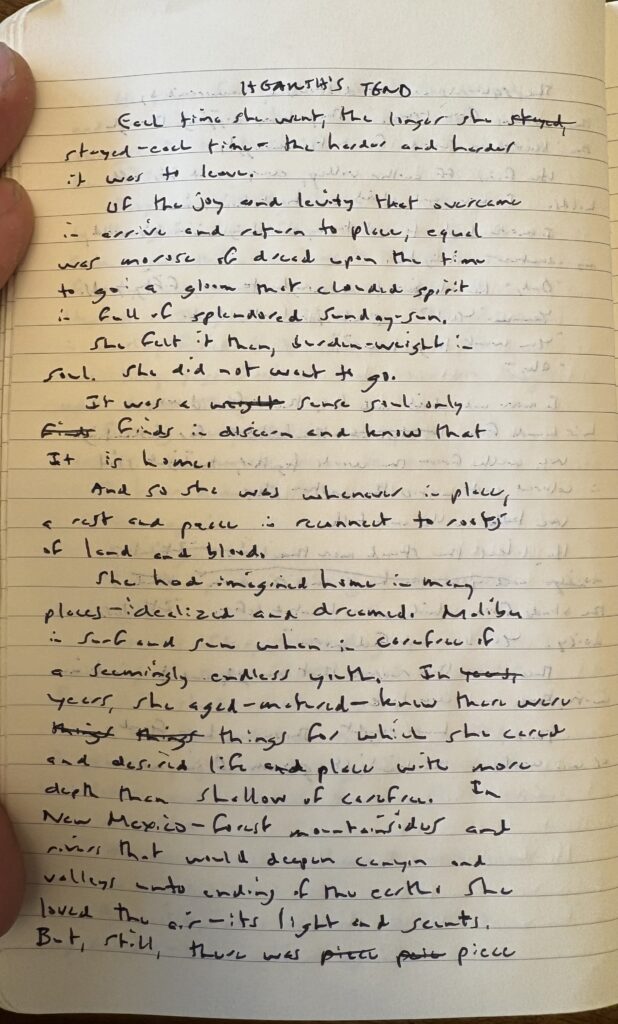 HEARTH'S TEND
Each time she went, the longer she stayed,
stayed-each time- the harder and harder
it was to leave.
Of the joy and levity that overcame
in arrive and return to place, equal
was morose of dread upon the time
to go; a gloom that clouded spirit
in full of splendored Sunday-sun.
She felt it then, burden-weight in
soul. She did not want to go.
It was a weight sense soul only
finds finds in discern and know that
It is home.
And so she was whenever in place,
a rest and peace in reconnect to roots
of land and blood.
She had imagined home in many
places-idealized and dreamed. Malibu
in surf and sun when in carefree of
a seemingly endless youth. In years,
years, she aged-matured-knew there were
things things things for which she cared
and desired life and place with more
depth than shallow of carefree. In
New Mexico-forest mountainsides and
rivers that would deepen canyon and
valleys unto ending of the earth. She
loved the air-its light and scents.
But, still, there was piece piece